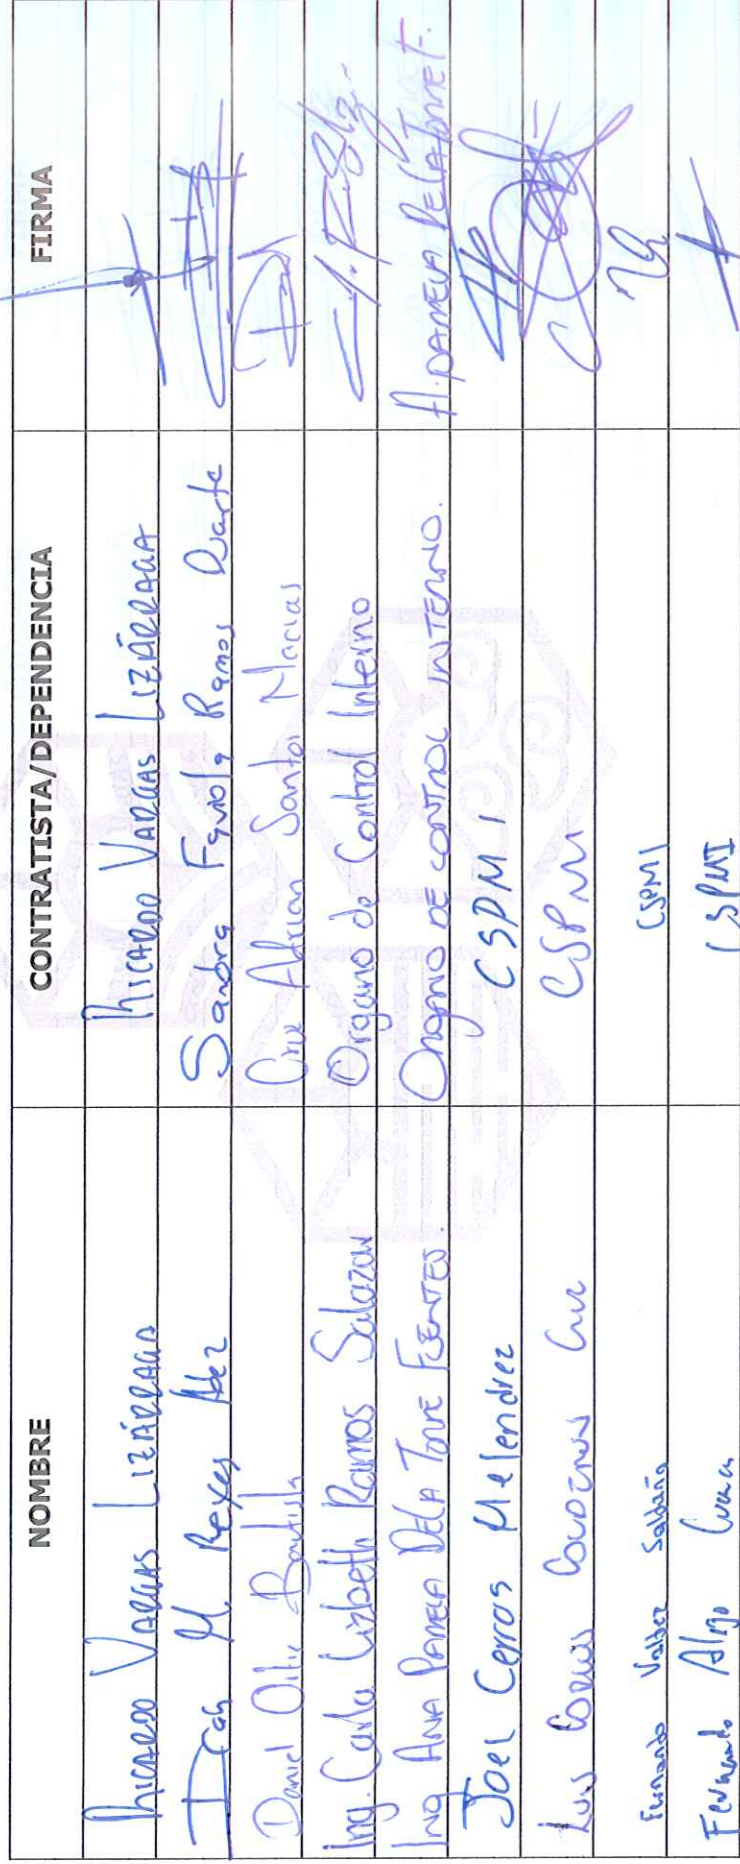 NOMBRE CONTRATISTA/DEPENDENCIA FIRMA
RICARDO VARGAS LIZÁRRAGA RICARDO VARGAS LIZÁRRAGA
M. Reyes Sandra Fabiola Ramos Duarte
Daniel Bautista Cruz Adrian Santos Macias
Ing. Carla Lizbeth Ramos Salazar Organo de Control Interno
Ing ANA PAMELA DE LA TORRE FUENTES. ORGANO DE CONTROL INTERNO. A. PAMELA DE LA TORRE F.
Joel Cerros Melendrez CSPM
Luis Cruz CSPM
Fernando Valdez Saldaña CSPMI
Fernando CSPMI